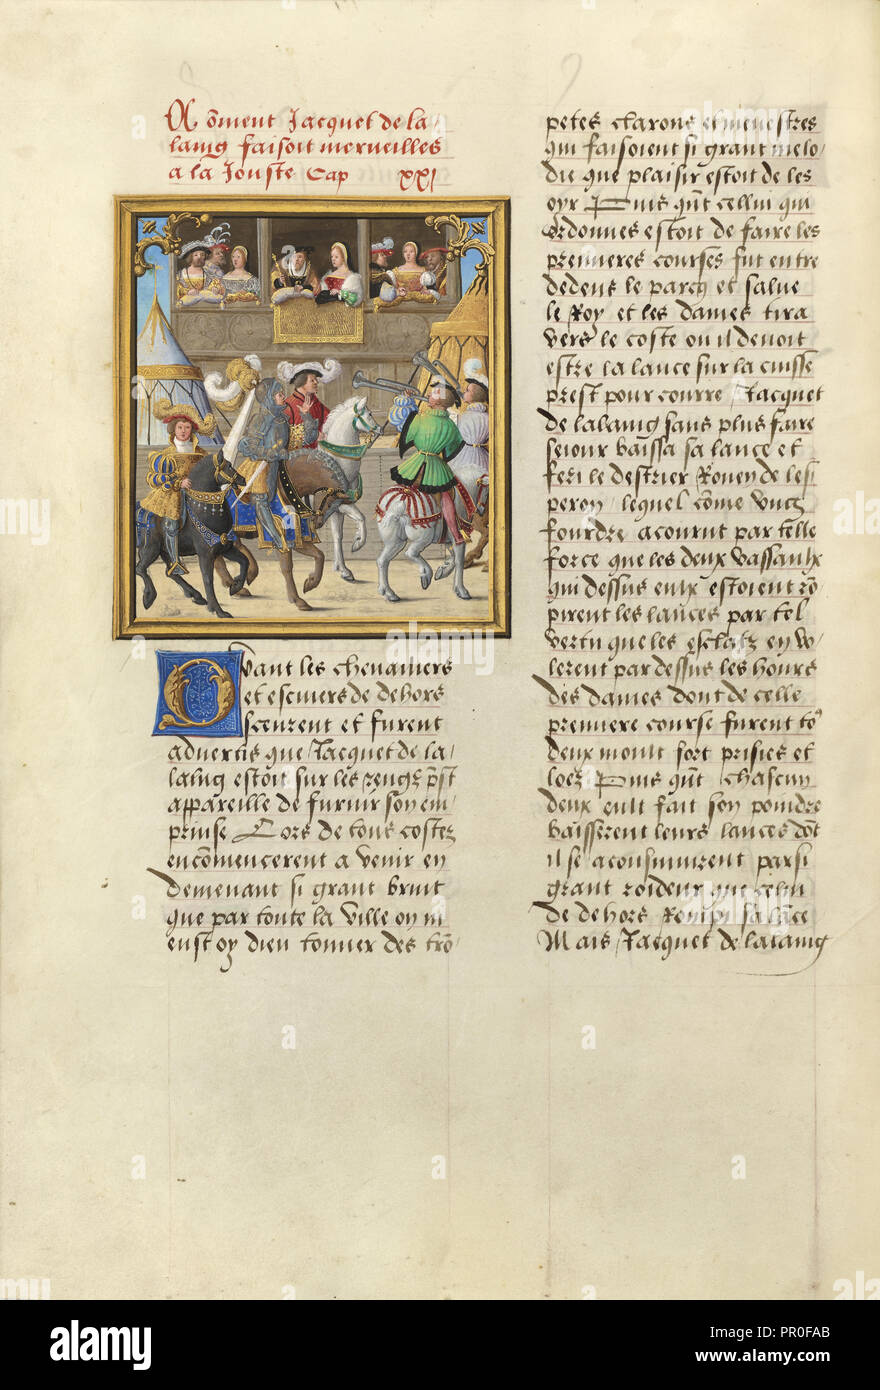 Comment Jacquet de la
laing faisoit merveilles
a la Jouste Cap XXI
Quant les chevaliers
et escuiers de dehors
sceurent et furent
advertis que Jacquet de la
laing estoit sur les rengz pst
appareille de furnir son em
prinse Lors de tous costez
encomencerent a venir en
demenant si grant bruit
que par toute la ville on n
eust oy dieu tonner des tro
petes clarons et menestres
qui faisoient si grant melo
die que plaisir estoit de les
oyr Puis qnt cellui qui
ordonnes estoit de faire les
premieres courses fut entre
dedens le parcq et salue
le Roy et les dames tira
vers le coste ou il devoit
estre la lance sur la cuisse
prest pour courre Jacquet
de lalaing sans plus faire
seiour baissa sa lance et
feri le destrier Roncy de les
peron lequel come ung
fourdre acourut par telle
force que les deux vassaulx
qui dessus eulx estoient ro
pirent les lances par tel
vertu que les esclatz en vo
lerent par dessus les hours
des dames dont de celle
premiere course furent to9
deux moult fort prisies et
loez Puis qnt chascun
deux eult fait son poindre
baisserent leurs lances dot
il se aconsuivirent par si
grant roideur que celui
de dehors Rompi sa lance
Mais Jacquet de lalaing
alamy
Image ID: PR0FAB
www.alamy.com